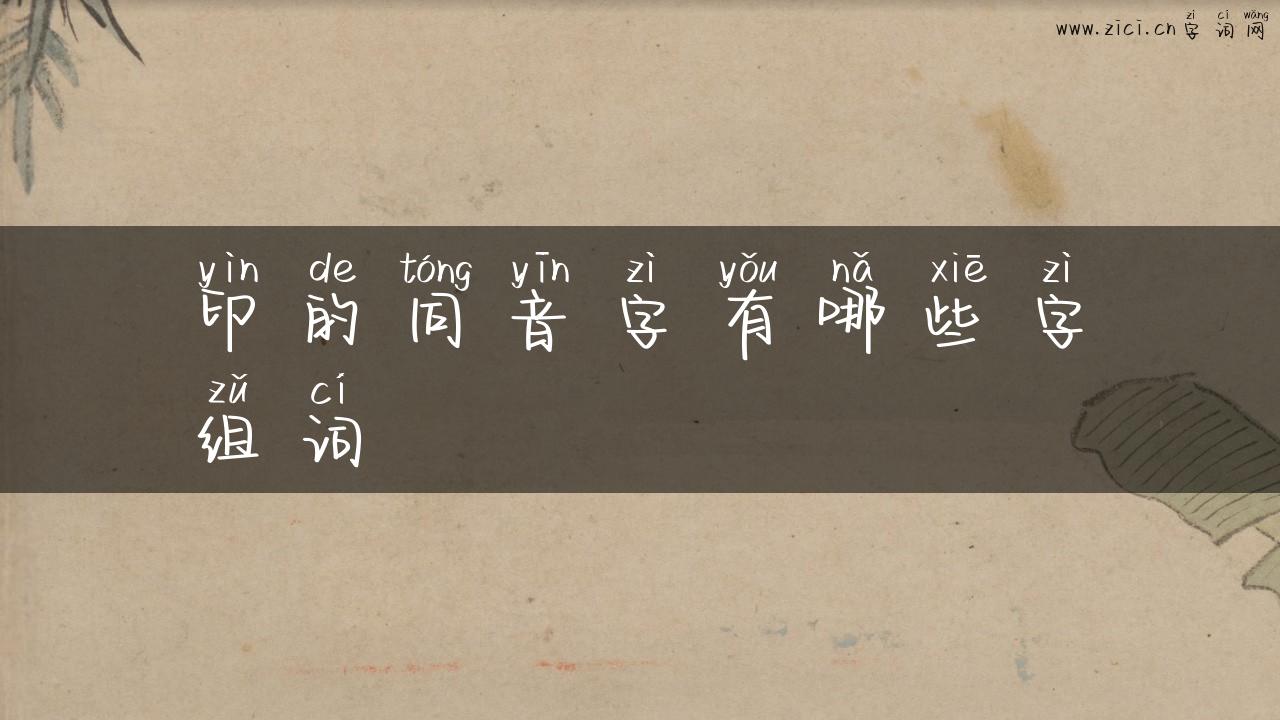 zì cí wǎng
www.zici.cn 字 词 网
yìn de tóng yīn zì yǒu nǎ xiē zì
印 的 同 音 字 有 哪 些 字
zǔ cí
组 词